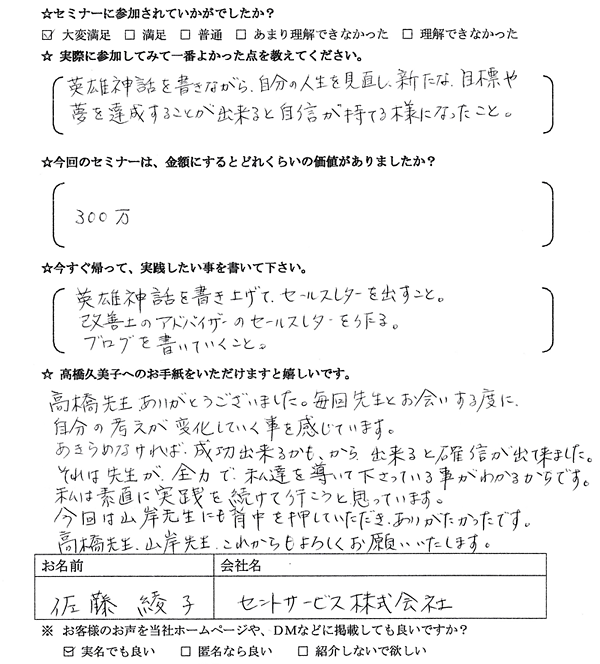 ☆セミナーに参加されていかがでしたか？
☑ 大変満足 □ 満足 □ 普通 □ あまり理解できなかった □ 理解できなかった
☆ 実際に参加してみて一番よかった点を教えてください。
英雄神話を書きながら、自分の人生を見直し、新たな、目標や
夢を達成することが出来ると自信が持てる様になったこと。
☆今回のセミナーは、金額にするとどれくらいの価値がありましたか？
300万
☆今すぐ帰って、実践したい事を書いて下さい。
英雄神話を書き上げて、セールスレターを出すこと。
改善士のアドバイザーのセールスレターを作る。
ブログを書いていくこと。
☆ 高橋久美子へのお手紙をいただけますと嬉しいです。
高橋先生ありがとうございました。毎回先生とお会いする度に、
自分の考えが変化していく事を感じています。
あきらめなければ、成功出来るかも、から、出来ると確信が出て来ました。
それは先生が、全力で、私達を導いて下さっている事がわかるからです。
私は素直に実践を続けて行こうと思っています。
今回は山岸先生にも背中を押していただき、ありがたかったです。
高橋先生、山岸先生、これからもよろしくお願いいたします。
お名前 会社名
佐藤 綾子 セントサービス株式会社
※ お客様のお声を当社ホームページや、DMなどに掲載しても良いですか？
☑ 実名でも良い □ 匿名なら良い □ 紹介しないで欲しい